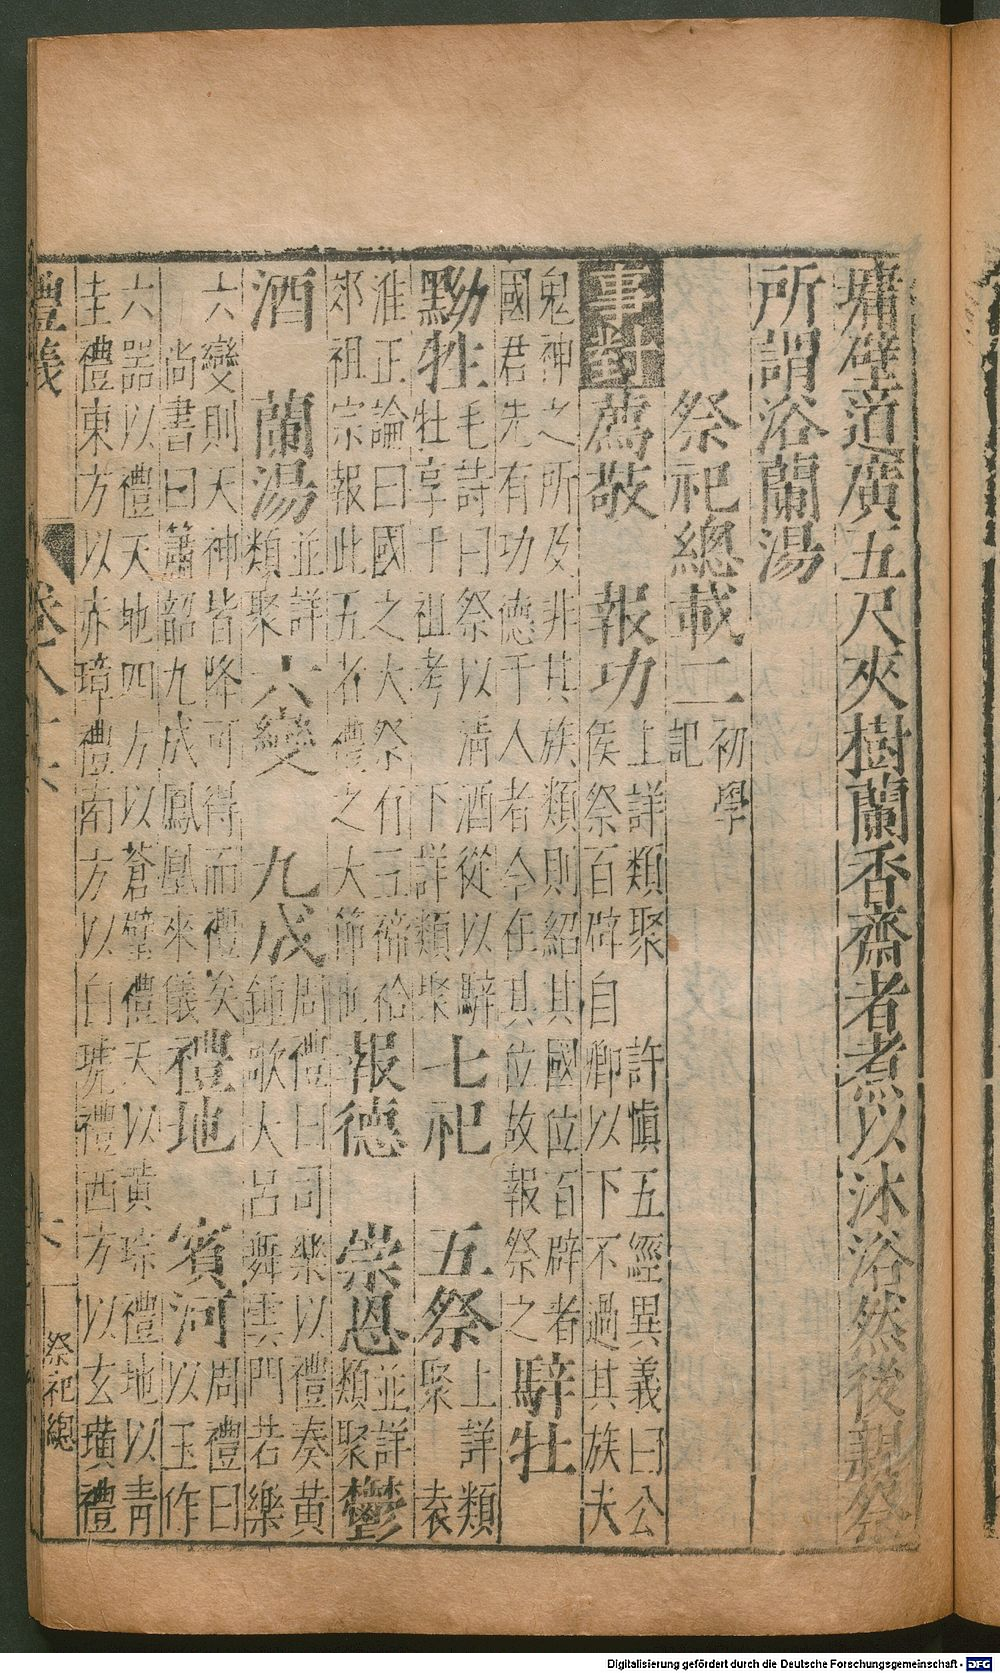 壖壁道廣五尺夾樹蘭香齋者煮以沐浴然後親祭
所謂浴蘭湯
祭祀總載二
初學
記
事對
薦敬 報功
上詳類聚 許慎五經異義曰公
侯祭百辟自卿以下不過其族夫
鬼神之所及非其族類則紹其國位百辟者
國君先有功德于人者今在其位故報祭之
騂牡
黝牲
毛詩曰祭以清酒從以騂
牡享于祖考 下詳類聚
七祀 五祭
上詳類
聚 袁
准正論曰國之大祭有五禘祫
郊祖宗報此五者禮之大節也
報德 崇恩
並詳
類聚
鬱
酒 蘭湯
並詳
類聚
六變 九成
周禮曰司樂以禮奏黃
鍾歌大呂舞雲門若樂
六變則天神皆降可得而禮矣
尚書曰簫韶九成鳳凰來儀
禮地 賓河
周禮曰
以玉作
六器以禮天地四方以蒼璧禮天以黃琮禮地以青
圭禮東方以赤璋禮南方以白琥禮西方以玄璜禮
禮義
卷八十六
祭祀總
Digitalisierung gefördert durch die Deutsche Forschungsgemeinschaft - DFG